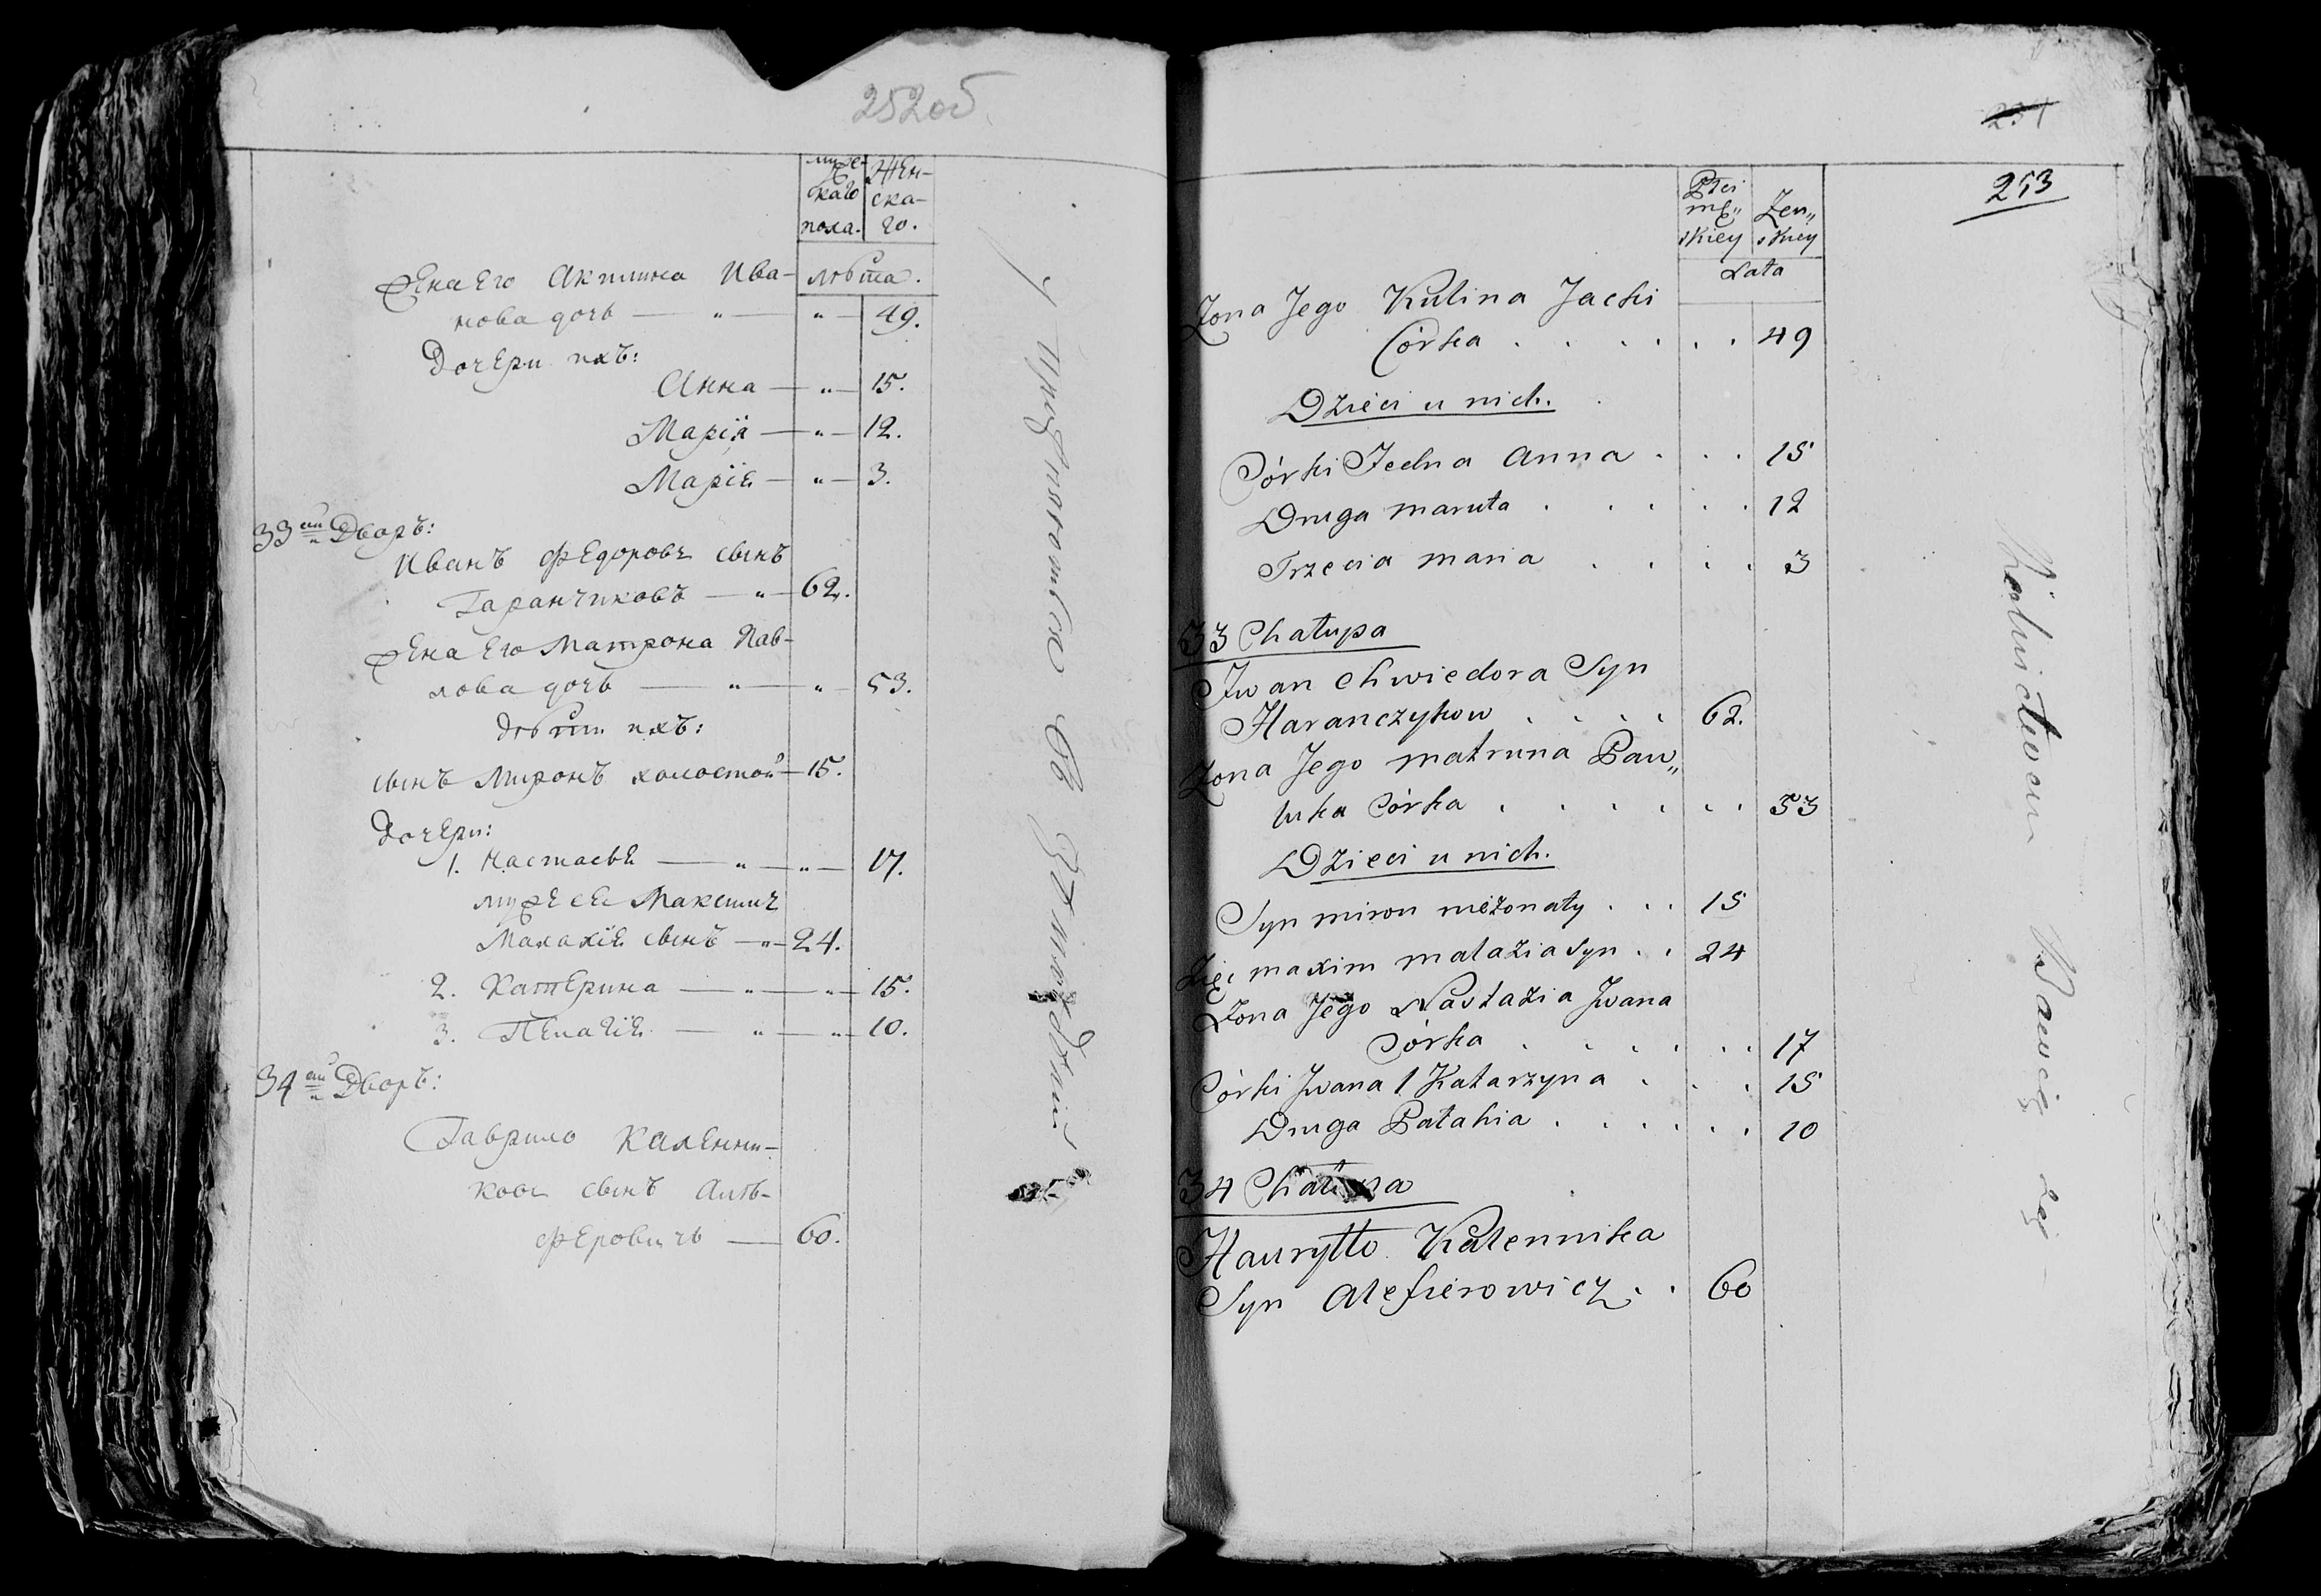 252об
муже-
скаго
пола.
Жен-
ска-
го.
лѣта.
жена Его Акилина Ива-
нова дочь — „ — „ — 49.
Дочери ихъ:
Анна — „ — 15.
Марія — „ — 12.
Марія — „ — 3.
33ий Дворъ:
Иванъ Федоровъ сынъ
Гаранчиковъ — „ — 62.
жена Его Матрона Пав-
лова дочь — „ — „ — 53.
дѣти ихъ:
сынъ Миронъ холостой — 15.
Дочери:
1. Настасья — „ — „ — 17.
мужъ ее Максимъ
Малахія сынъ — „ — 24.
2. Катерина — „ — „ — 15.
3. Пелагія — „ — „ — 10.
34ый Дворъ:
Гаврило Каленни-
ковъ сынъ Алѣ-
феровичъ — 60.
253
Płci
mę„
skiey
Żen„
skiey
Lata
Żona Jego Kulina Jacki
Córka . . . . . . 49
Dzieci u nich.
Córki Jedna Anna . . . 15
Druga maruta . . . . . 12
Trzecia maria . . . . . 3
33 Chałupa
Jwan Chwiedora Syn
Haranczykow . . . . 62.
Żona Jego matruna Paw„
luka Córka . . . . . . 53
Dzieci u nich.
Syn miron nieżonaty . . . 15
Zięć maxim małaźia syn . . 24
Żona Jego Nastazia Jwana
Córka . . . . . . 17
Córki Jwana 1 Katarzyna . . . 15
Druga Pałahia . . . . . . 10
34 Chałupa
Hauryłło Kalennika
Syn Alefierowicz . . 60